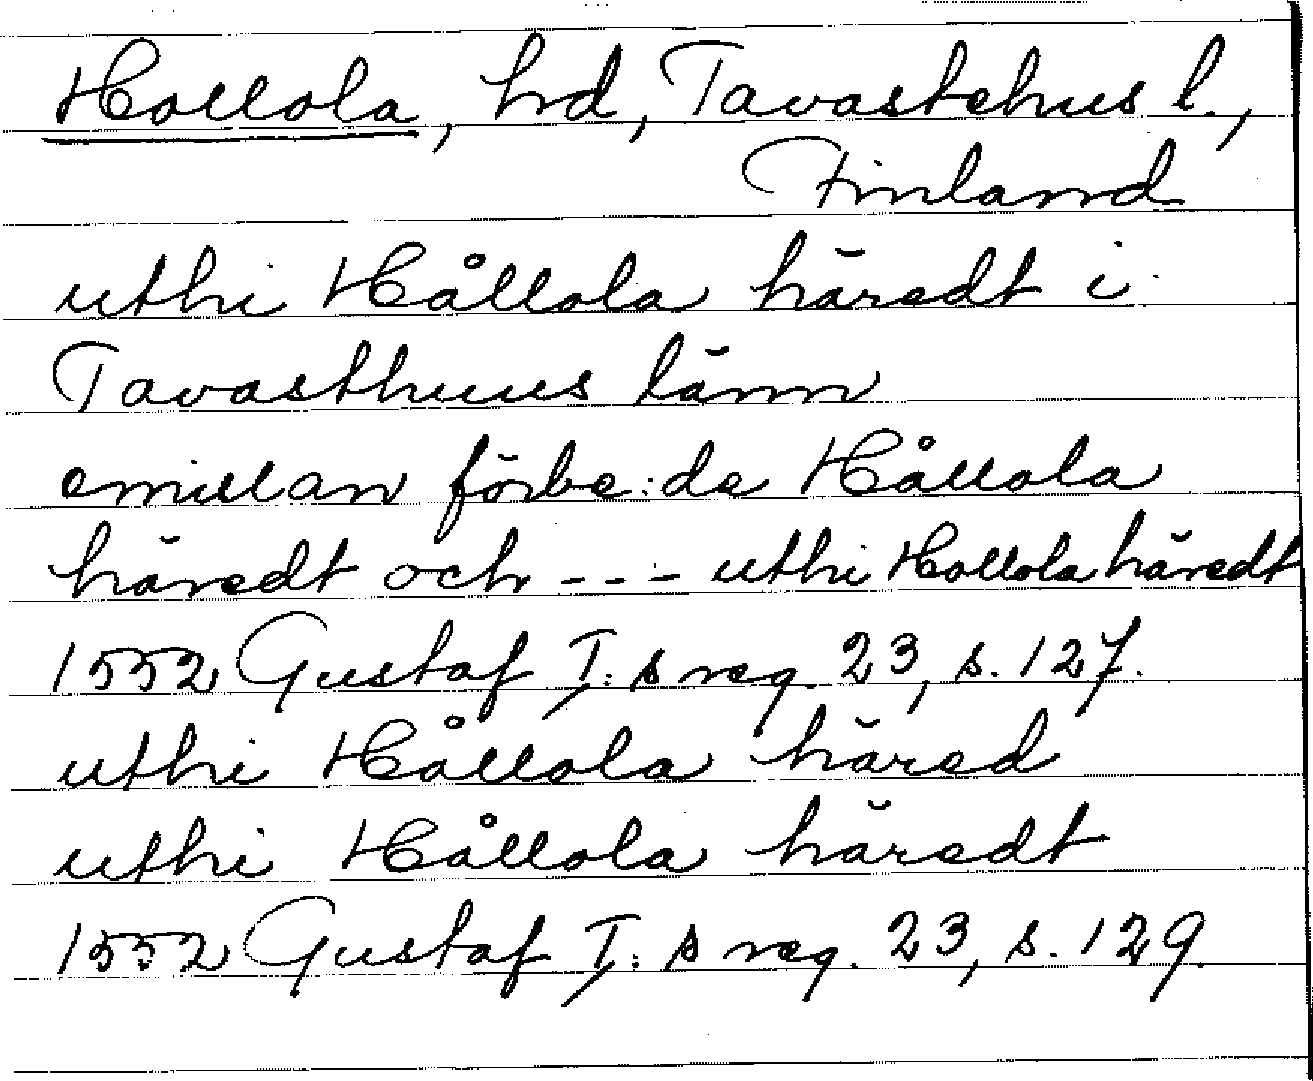 Hollola, hrd, Tavastehus l.,
Finland
uthi Hållola häredt i
Tavasthuus länn
emillan förbe:de Hållola
häredt och - - - uthi Hollola häredt
1552 Gustaf I:s reg. 23, s. 127.
uthi Hållola häred
uthi Hållola häredt
1552 Gustaf I:s reg. 23, s. 129.